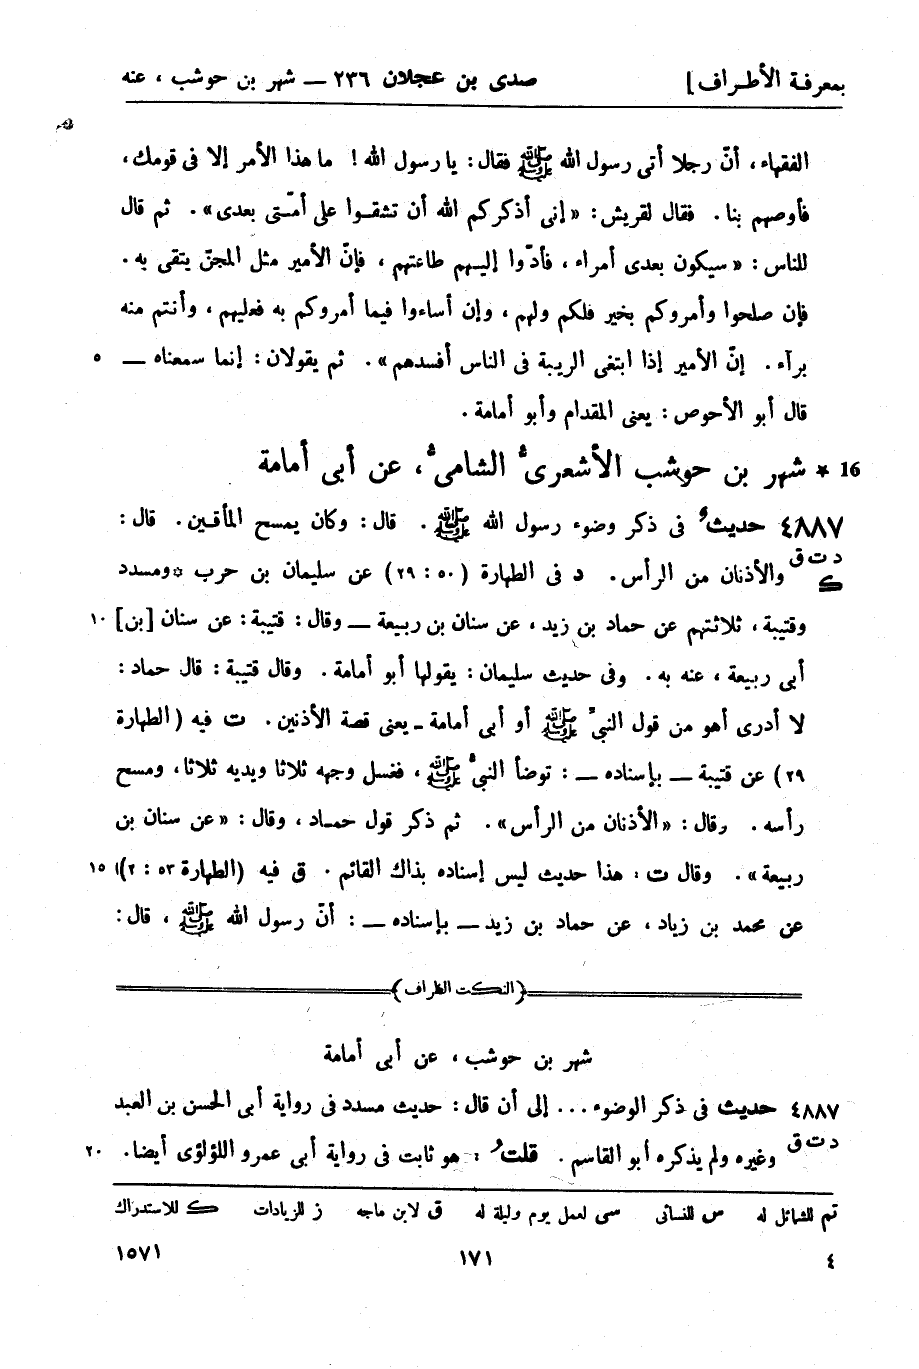 بمعرفة الأطراف] صدى بن عجلان ٢٣٦ — شهر بن حوشب ، عنه
الفقهاء ، أنّ رجلا أتى رسول الله ﷺ فقال : يا رسول الله ! ما هذا الأمر إلا فى قومك ،
فأوصهم بنا . فقال لقريش : «إنى أذكركم الله أن تشقوا على أمّتى بعدى» . ثم قال
للناس : «سيكون بعدى أمراء ، فأدّوا إليهم طاعتهم ، فإنّ الأمير مثل المجنّ يتقى به .
فإن صلحوا وأمروكم بخير فلكم ولهم ، وإن أساءوا فيما أمروكم به فعليهم ، وأنتم منه
برآء . إنّ الأمير إذا ابتغى الريبة فى الناس أفسدهم» . ثم يقولان : إنما سمعناه — ٥
قال أبو الأحوص : يعنى المقدام وأبو أمامة .
16 * شهر بن حوشب الأشعرىُّ الشامىُّ ، عن أبى أمامة
٤٨٨٧ حديثُ فى ذكر وضوء رسول الله ﷺ . قال : وكان يمسح المأقين . قال :
د ت ق ك والأذنان من الرأس . د فى الطهارة (٥٠ : ٢٩) عن سليمان بن حرب *ومسدد
وقتيبة ، ثلاثتهم عن حماد بن زيد ، عن سنان بن ربيعة — وقال : قتيبة : عن سنان [بن] ١٠
أبى ربيعة ، عنه به . وفى حديث سليمان : يقولها أبو أمامة . وقال قتيبة : قال حماد :
لا أدرى أهو من قول النبىّ ﷺ أو أبى أمامة ـ يعنى قصة الأذنين . ت فيه (الطهارة
٢٩) عن قتيبة — بإسناده — : توضأ النبىُّ ﷺ ، فغسل وجهه ثلاثا ويديه ثلاثا ، ومسح
رأسه . وقال : «الأذنان من الرأس» . ثم ذكر قول حماد ، وقال : «عن سنان بن
ربيعة» . وقال ت : هذا حديث ليس إسناده بذاك القائم . ق فيه (الطهارة ٥٣ : ٢) ١٥
عن محمد بن زياد ، عن حماد بن زيد — بإسناده — : أنّ رسول الله ﷺ ، قال :
(النكت الظراف)
شهر بن حوشب ، عن أبى أمامة
٤٨٨٧ حديث فى ذكر الوضوء . . . إلى أن قال : حديث مسدد فى رواية أبى الحسن بن العبد
د ت ق وغيره ولم يذكره أبو القاسم . قلتُ : هو ثابت فى رواية أبى عمرو اللؤلؤى أيضا . ٢٠
تم للشمائل له س للنسائى سى لعمل يوم وليلة له ق لابن ماجه ز للزيادات ك للاستدراك
٤ ١٧١ ١٥٧١